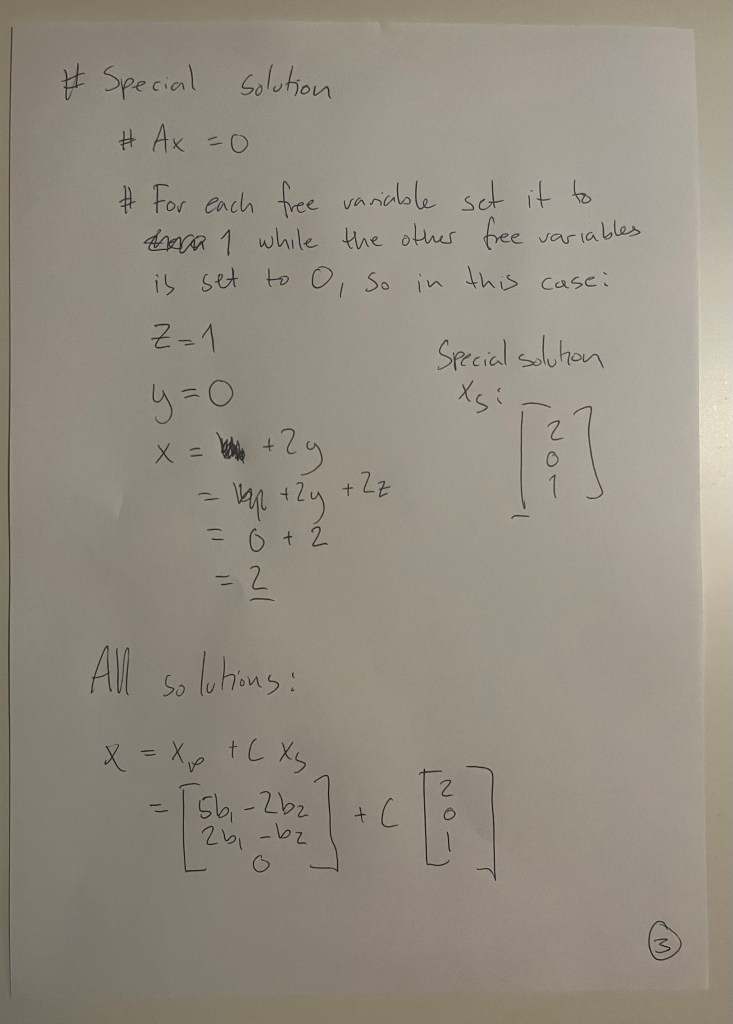 # Special solution
# Ax = 0
# For each free variable set it to
1 while the other free variables
is set to 0, so in this case:
z = 1
y = 0
x = + 2y
= + 2y + 2z
= 0 + 2
= 2
Special solution
xs:
[2
0
1]
All solutions:
x = xp + C xs
= [5b1 - 2b2
2b1 - b2
0] + C [2
0
1]
3